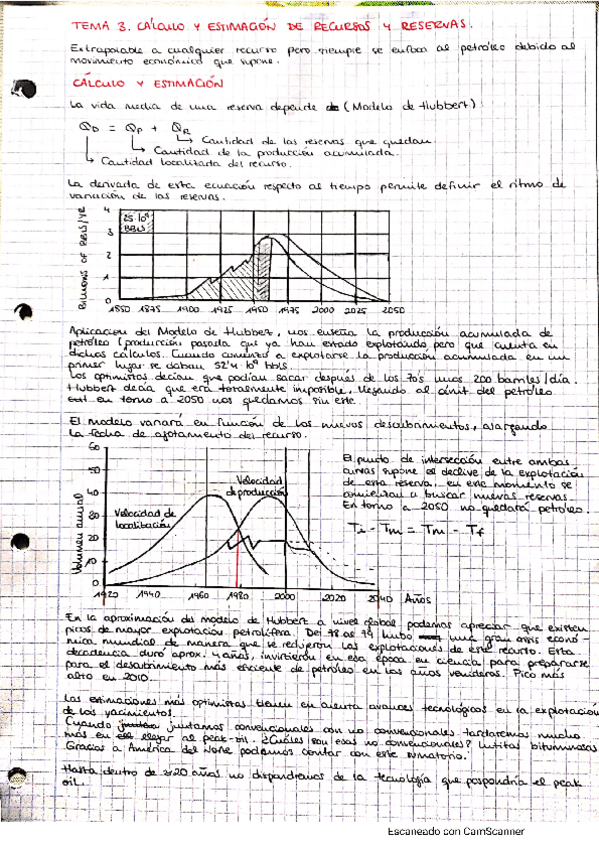 TEMA 3. CÁLCULO Y ESTIMACIÓN DE RECURSOS Y RESERVAS.
Extrapolable a cualquier recurso pero siempre se enfoca al petróleo debido al
movimiento económico que supone.
CÁLCULO Y ESTIMACIÓN
La vida media de una reserva depende (Modelo de Hubbert):
QD = QP + QR
Cantidad de las reservas que quedan.
Cantidad de la producción acumulada.
Cantidad localizada del recurso.
La derivada de esta ecuación respecto al tiempo permite definir el ritmo de
variación de las reservas.
BILLIONS OF BBLS/YR
4
3
2
1
0
25·10⁹
BBLS
1850 1875 1900 1925 1950 1975 2000 2025 2050
Aplicación del Modelo de Hubbert, nos enseña la producción acumulada de
petróleo (producción pasada que ya han estado explotando, pero que cuenta en
dichos cálculos. Cuando comenzó a explotarse la producción acumulada en un
primer lugar se daban 52'4 10⁹ bbls.
Los optimistas decían que podían sacar después de los 70's unos 200 barriles/día.
Hubbert decía que era totalmente imposible, llegando al cénit del petróleo
en torno a 2050 nos quedamos sin este.
El modelo variará en función de los nuevos descubrimientos, alargando
la fecha de agotamiento del recurso.
Volumen anual
60
50
40
30
20
10
0
Velocidad de
localización
Velocidad
de producción
1920 1940 1960 1980 2000 2020 2040 Años
El punto de intersección entre ambas
curvas supone el declive de la explotación
de esa reserva, en ese momento se
comienzan a buscar nuevas reservas.
En torno a 2050 no quedará petróleo.
Ti - Tm = Tm - Tf
En la aproximación del modelo de Hubbert a nivel global podemos apreciar que existen
picos de mayor explotación petrolífera. Del 78 as 79 hubo una gran crisis econó-
mica mundial de manera que se redujeron las explotaciones de este recurso. Esta
decadencia duró aprox. 4 años, invirtieron en esa época en ciencia para prepararse
para el descubrimiento más eficiente de petróleo en los años venideros. Pico más
alto en 2010.
Las estimaciones más optimistas tienen en cuenta avances tecnológicos en la explotación
de los yacimientos.
Cuando juntamos convencionales con no convencionales tardaremos mucho
más en llegar al peak-oil. ¿Cuáles son esas no convencionales? Lutitas bituminosas
Gracias a América del Norte podemos contar con este sumatorio.
Hasta dentro de 20 años no dispondremos de la tecnología que pospondría el peak
oil.
Escaneado con CamScanner